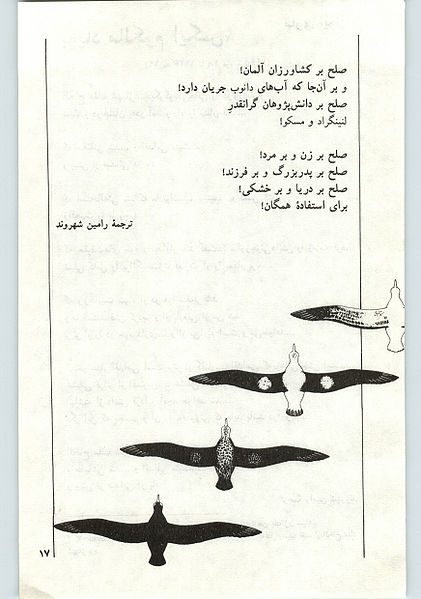 صلح بر کشاورزان آلمان!
و بر آن‌جا که آب‌های دانوب جریان دارد!
صلح بر دانش‌پژوهان گرانقدرِ
لنینگراد و مسکو!
صلح بر زن و بر مرد!
صلح بر پدربزرگ و بر فرزند!
صلح بر دریا و بر خشکی!
برای استفادهٔ همگان!
ترجمهٔ رامین شهروند
۱۷